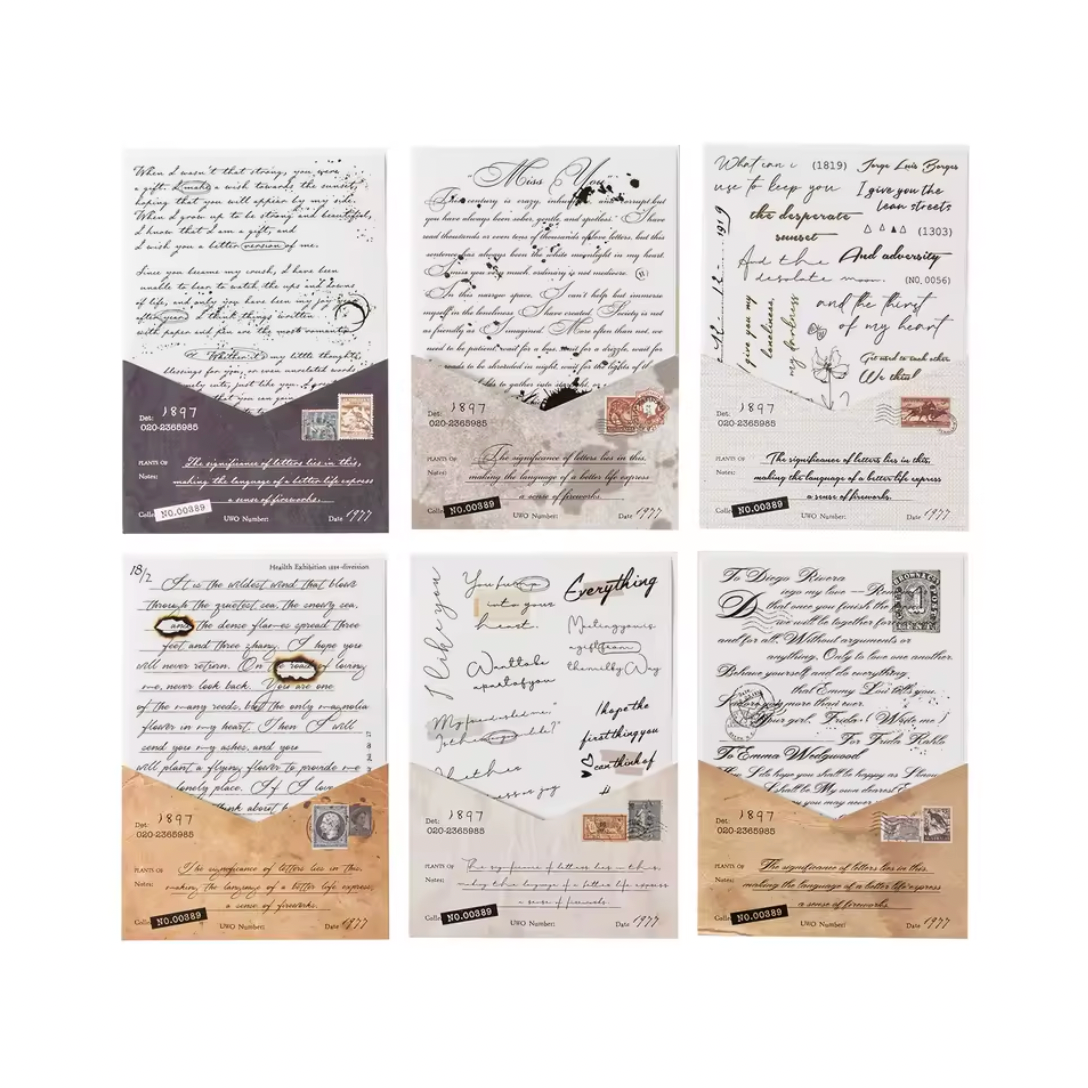 When I wasn't that strong, you were
a gift. I make a wish towards the sunset,
hoping that you will appear by my side.
When I grew up to be strong and beautiful,
I know that I am a gift, and
I wish you a better version of me.
Since you became my crush, I have been
unable to bear to watch the ups and downs
of life, and only you have been my joy
after years. I think things written
with paper and pen are the most romantic
Whether it's my little thoughts,
blessings for you, or even unrelated words
cute, just like you. I
that you can
Det: 1897
020-2365985
PLANTS OF
Notes:
The significance of letters lies in this,
making the language of a better life express
a sense of fireworks.
NO.00389
UWO Number:
Date 1977
Miss You
century is crazy, and corrupt but
you have always been sober, gentle, and spotless. I have
read thousands or even tens of thousands of love letters, but this
sentence has always been the white moonlight in my heart.
miss you very much, ordinary is not mediocre.
In this narrow space, I can't help but immerse
myself in the loneliness I have created. Society is not
as friendly as I imagined. More often than not, we
need to be patient, wait for a bus, wait for a drizzle, wait for
to be shrouded in night, wait for the lights of
to gather into
Det: 1897
020-2365985
PLANTS OF
Notes:
The significance of letters lies in this,
making the language of a better life express
a sense of fireworks.
NO.00389
UWO Number:
Date 1977
What can i (1819) Jorge Luis Borges
use to keep you I give you the
lean streets
the desperate
sunset (1303)
And the And adversity
desolate moon. (NO, 0056)
1919
i give you my
loneliness,
my darkness
and the thirst
of my heart
Get used to each other
We thirst
Det: 1897
020-2365985
PLANTS OF
Notes:
The significance of letters lies in this,
making the language of a better life express
a sense of fireworks.
NO.00389
UWO Number:
Date 1977
18/2 Health Exhibition
It is the wildest wind that blows
through the quietest sea, the snowy sea,
and the dense flames spread three
feet and three zhang. I hope you
will never return. On the road of loving
me, never look back. You are one
of the many reeds, but the only magnolia
flower in my heart. Then I will
send you my ashes, and you
will plant a flying flower to provide me
lonely place. If I love
think about
Det: 1897
020-2365985
PLANTS OF
Notes:
The significance of letters lies in this,
making the language of a better life express,
a sense of fireworks.
NO.00389
UWO Number:
Date 1977
I like you
You
into your
heart.
Everything
Meeting you is
a gift from
the milky Way
Want to be
a part of you
My friend asked me,"
like?"
I hope the
first thing you
can think of
Whether
or joy
Det: 1897
020-2365985
PLANTS OF
Notes:
The significance of letters lies in this,
making the language of a better life express
a sense of fireworks.
NO.00389
UWO Number:
Date 1977
To Diego Rivera
my love
that once you finish the
we will be together
and for all. Without arguments or
anything, Only to love one another.
Behave yourself, and do everything
that Emmy Lou tells you.
you more than ever.
Your girl, Frida (Write me)
For Frida Kahlo
To Emma Wedgwood
I do hope you shall be happy as I know
I shall be My own dearest
you may never
Det: 1897
020-2365985
PLANTS OF
Notes:
The significance of letters lies in this,
making the language of a better life express
a sense of fireworks.
NO.00389
UWO Number:
Date 1977